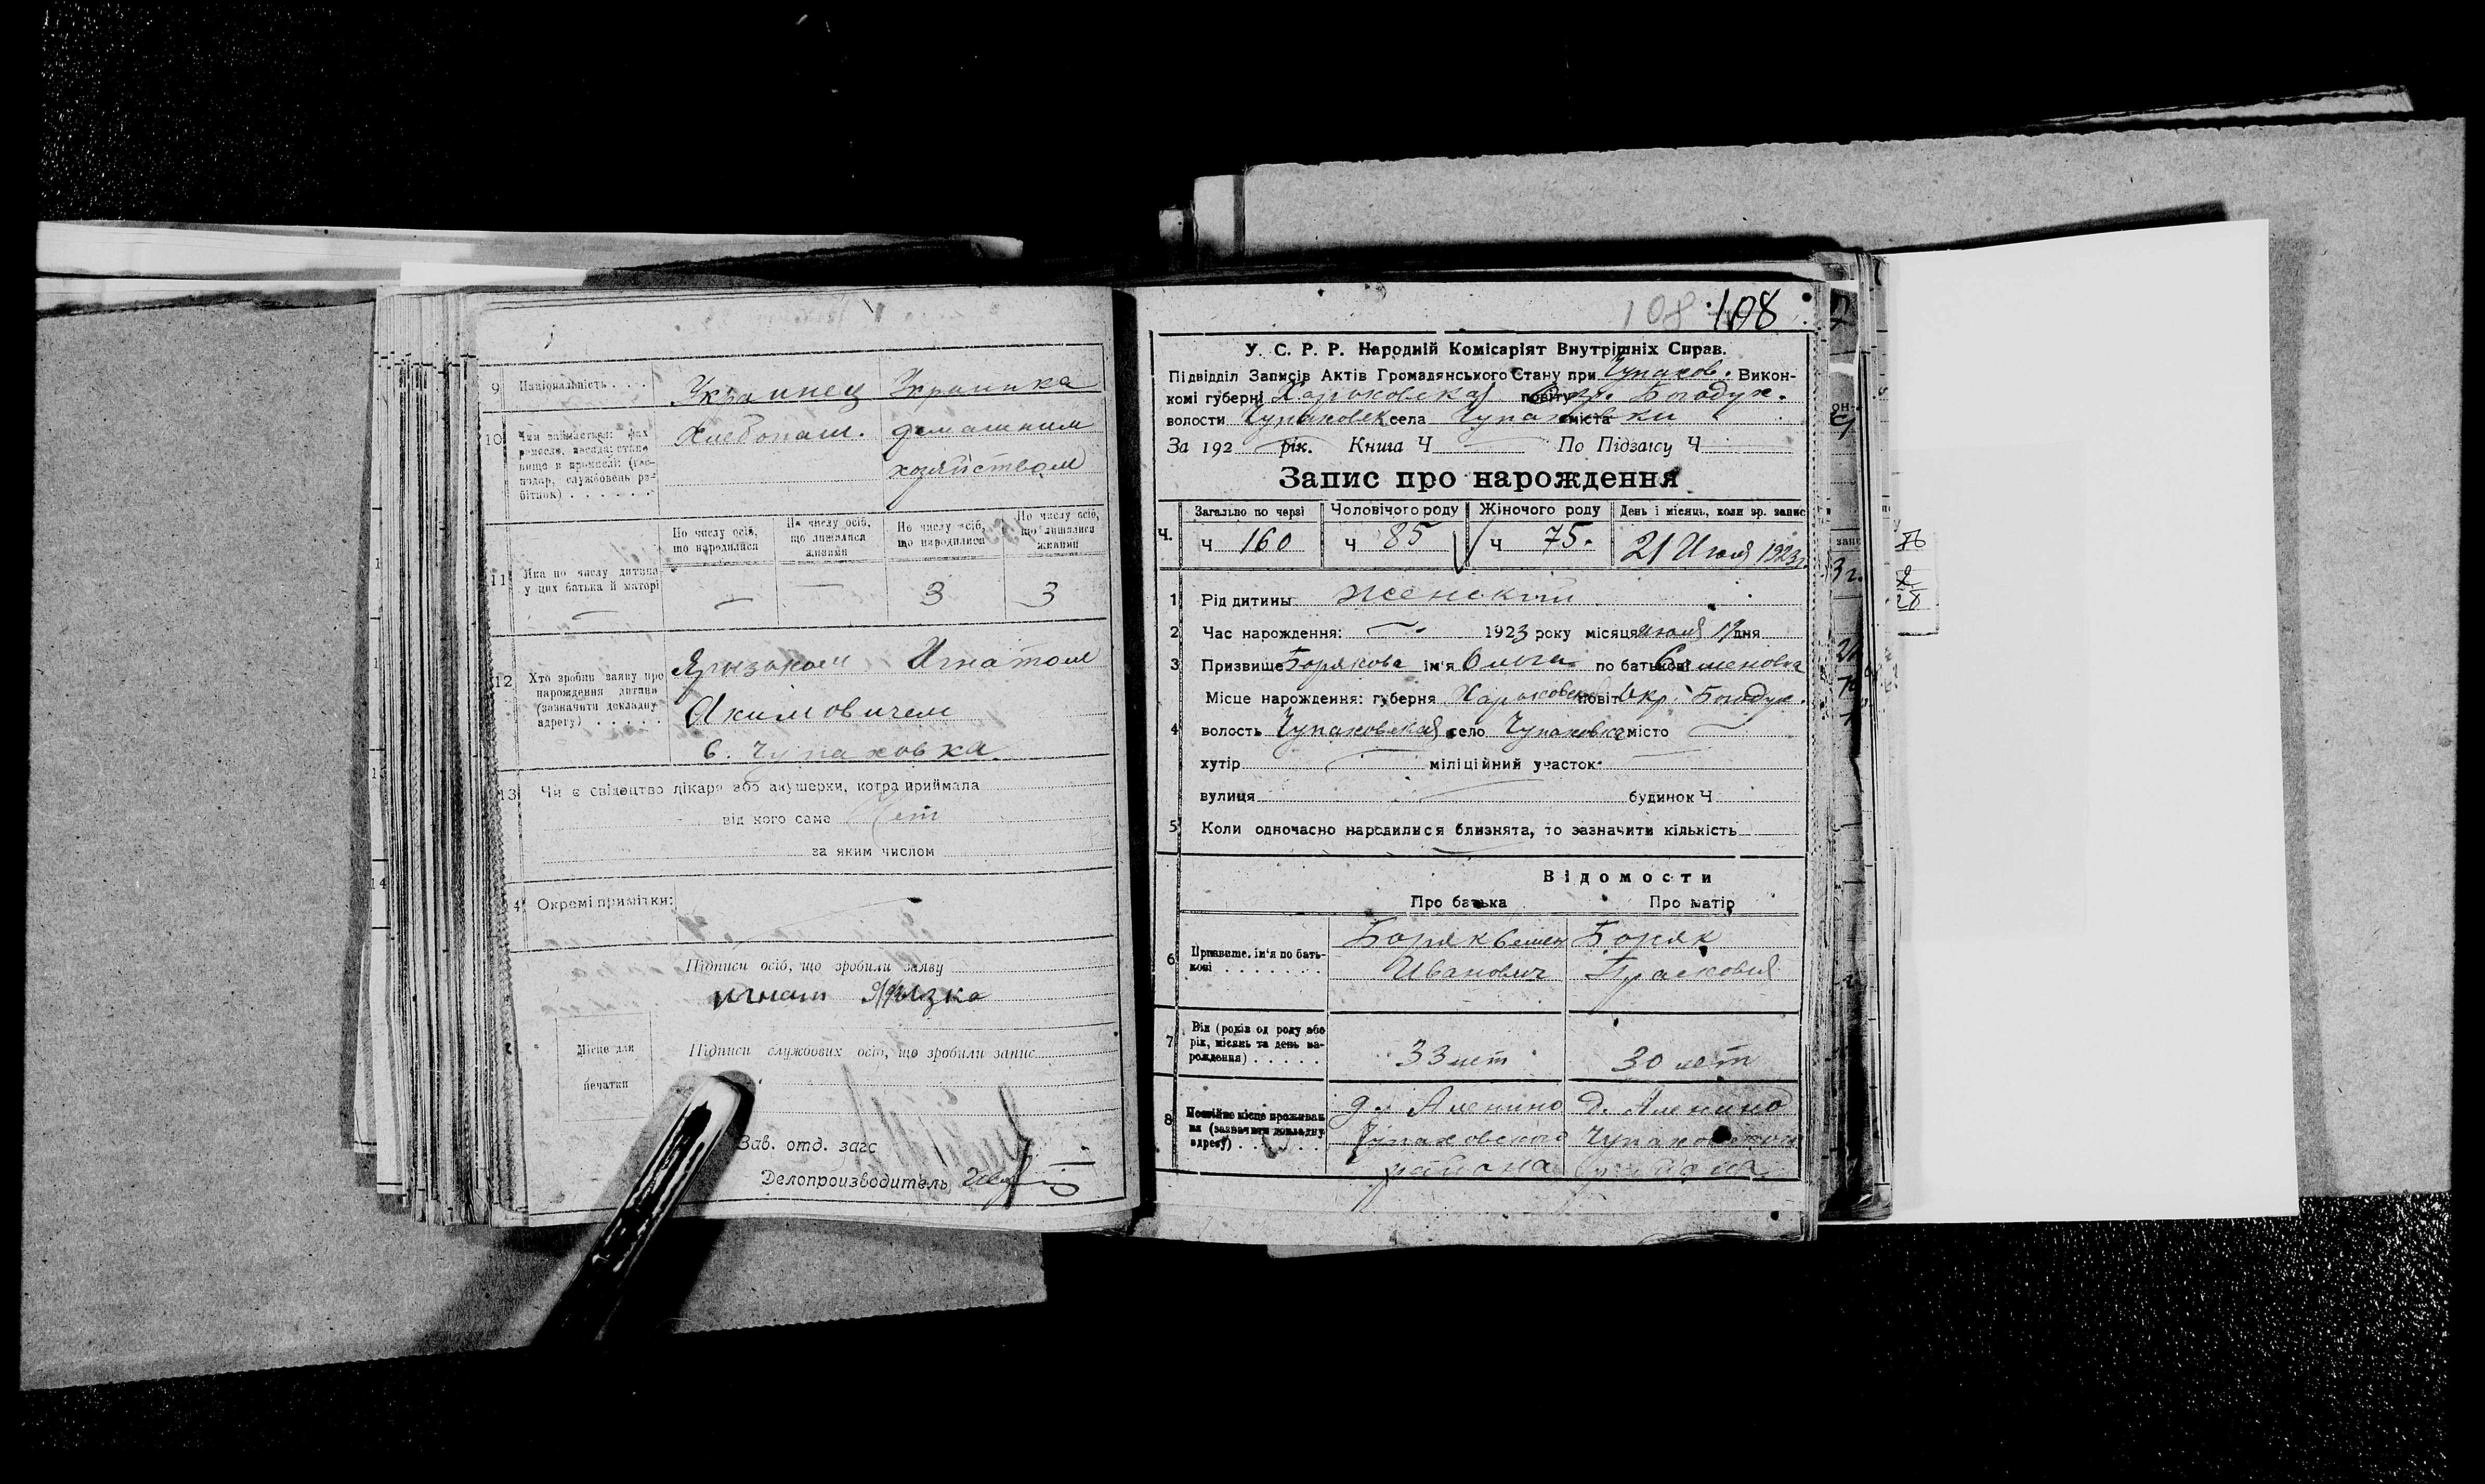 9 Національність . . . . Украинец Украинка
10 Чим займається: фах ремесло, посада, становище в промислі (господар, службовець робітник) . . . . . . Хлебопаш. домашним
хозяйством
По числу осіб, що народилися По числу осіб, що лишилися живими По числу осіб, що народилися По числу осіб, що лишилися живими
11 Яка по числу дитина у цих батька й матері — — 3 3
12 Хто зробив заяву про народження дитини (зазначити докладну адресу) . . . . . Ярызком Игнатом
Акимовичем
с. Чупаховка
13 Чи є свідоцтво лікаря або акушерки, котра приймала
від кого саме Нет
за яким числом
14 Окремі примітки:
Підписи осіб, що зробили заяву
игнат Ярызко
Місце для печатки
Підписи службових осіб, що зробили запис
Зав. отд. загс
Делопроизводитель
108 108
У. С. Р. Р. Народній Комісаріят Внутрішніх Справ.
Підвідділ Записів Актів Громадянського Стану при Чупахов. Викон-
комі губерні Харьковская повіту Окр. Богодух.
волости Чупаховск села Чупаховки міста
За 192 рік. Книга Ч По Підзагсу Ч
Запис про народження
Загально по черзі Чоловічого роду Жіночого роду День і місяць, коли зр. запис
Ч. Ч 160 Ч 85 Ч 75. 21 Июля 1923г.
1 Рід дитины Женский
2 Час нарождення: — 1923 року місяця июля 19 дня
3 Призвище Борякова ім'я Ольга по батькові Семеновна
Місце нарождення: губерня Харьковская повіт Окр. Богодух.
4 волость Чупаховская село Чупаховка місто
хутір міліційний участок
вулиця будинок Ч
5 Коли одночасно народилися близнята, то зазначити кількість
Відомости
Про батька Про матір
6 Призвище, ім'я по батькові . . . . . . . Боряк Семен Боряк
Иванович Прасковия
7 Вік (років од роду або рік, місяць та день народження) . . . . . 33 лет 30 лет
8 Постійне місце проживання (зазначити докладну адресу) . . . . . д. Аленино д. Аленино
Чупаховского Чупаховского
района района